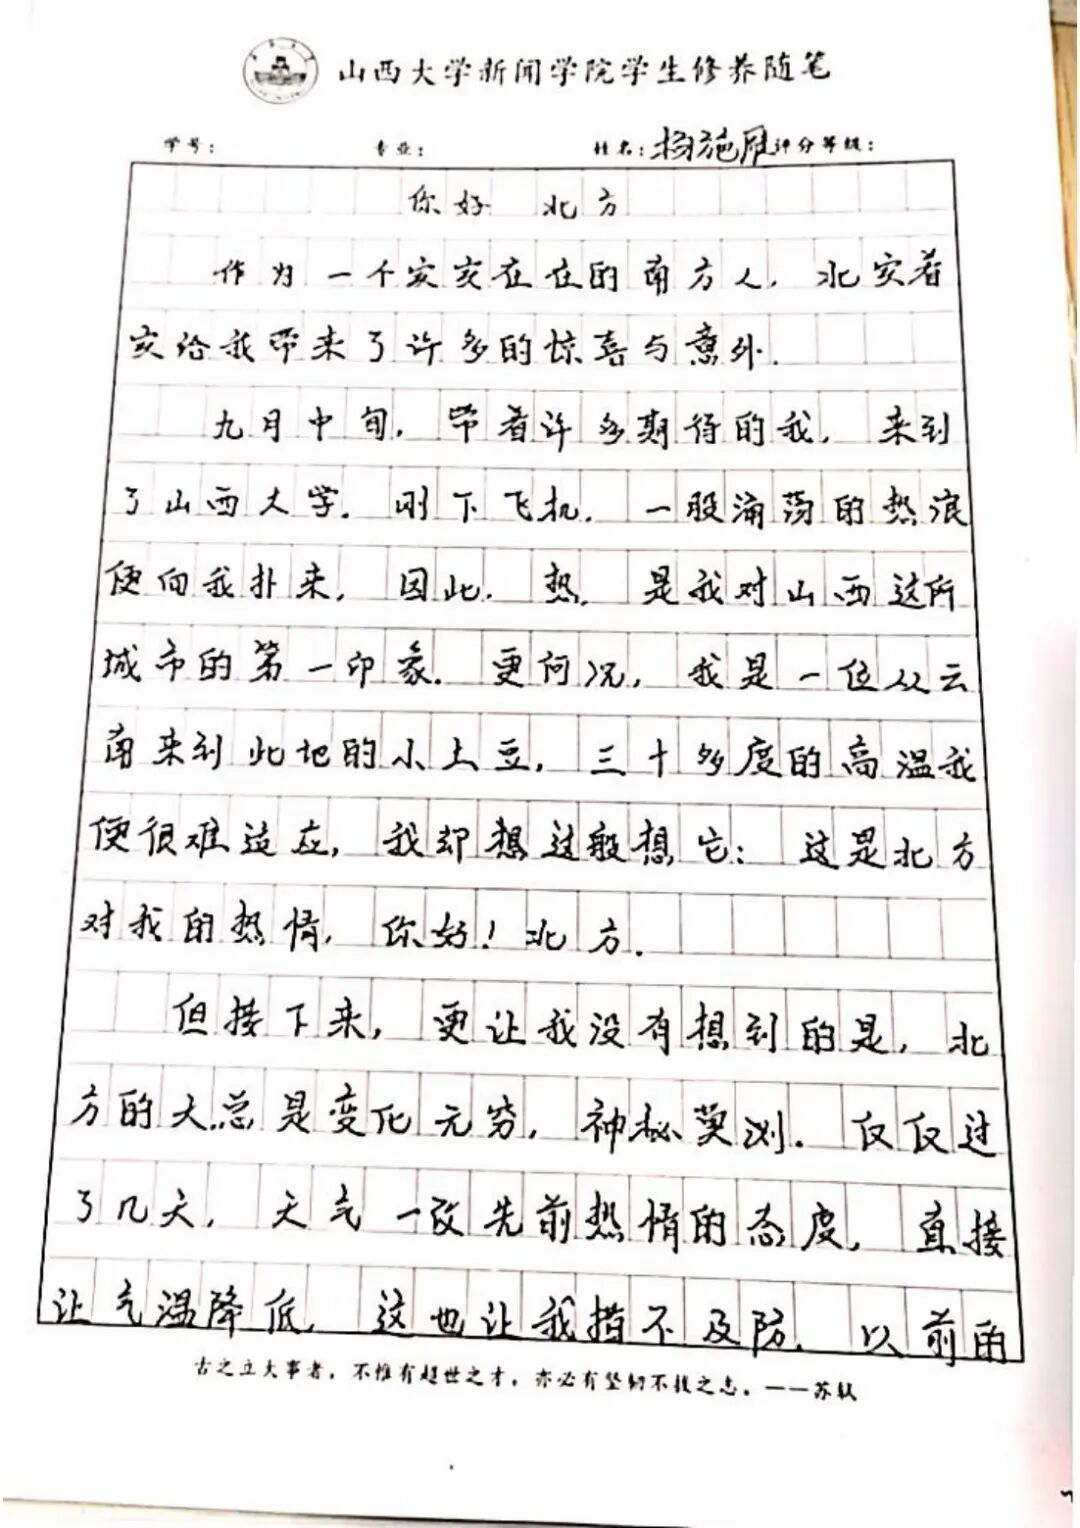 山西大学新闻学院学生修养随笔
学号： 专业： 姓名：杨施雁 评分等级：
你好 北方
作为一个实实在在的南方人，北实着
实给我带来了许多的惊喜与意外.
九月中旬，带着许多期待的我，来到
了山西大学. 刚下飞机. 一股滴荡的热浪
便向我扑来，因此，热，是我对山西这所
城市的第一印象. 更何况，我是一位从云
南来到此地的小土豆，三十多度的高温我
便很难适应，我却想这般想它：这是北方
对我的热情，你好！北方.
但接下来，更让我没有想到的是，北
方的大总是变化无穷，神秘莫测. 仅仅过
了几天，天气一改先前热情的态度，直接
让气温降低，这也让我措不及防. 以前的
古之立大事者，不惟有超世之才，亦必有坚韧不拔之志。——苏轼